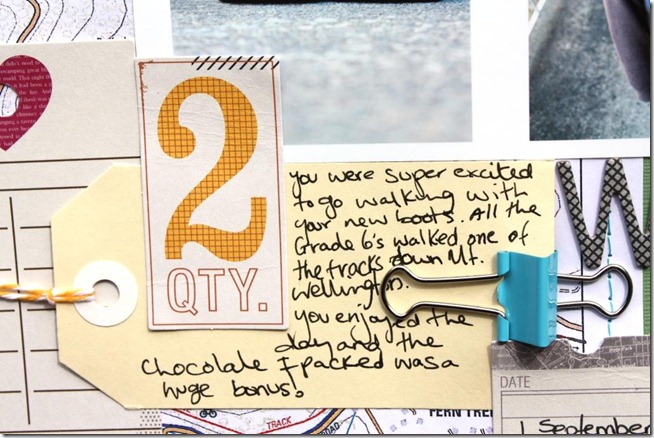 2
QTY.
you were super excited
to go walking with
your new boots. All the
Grade 6's walked one of
the tracks down Mt.
Wellington.
you enjoyed the
day and the
chocolate I packed was a
huge bonus!
W
DATE
1 September
TRACK
ROAD
FERN TRE